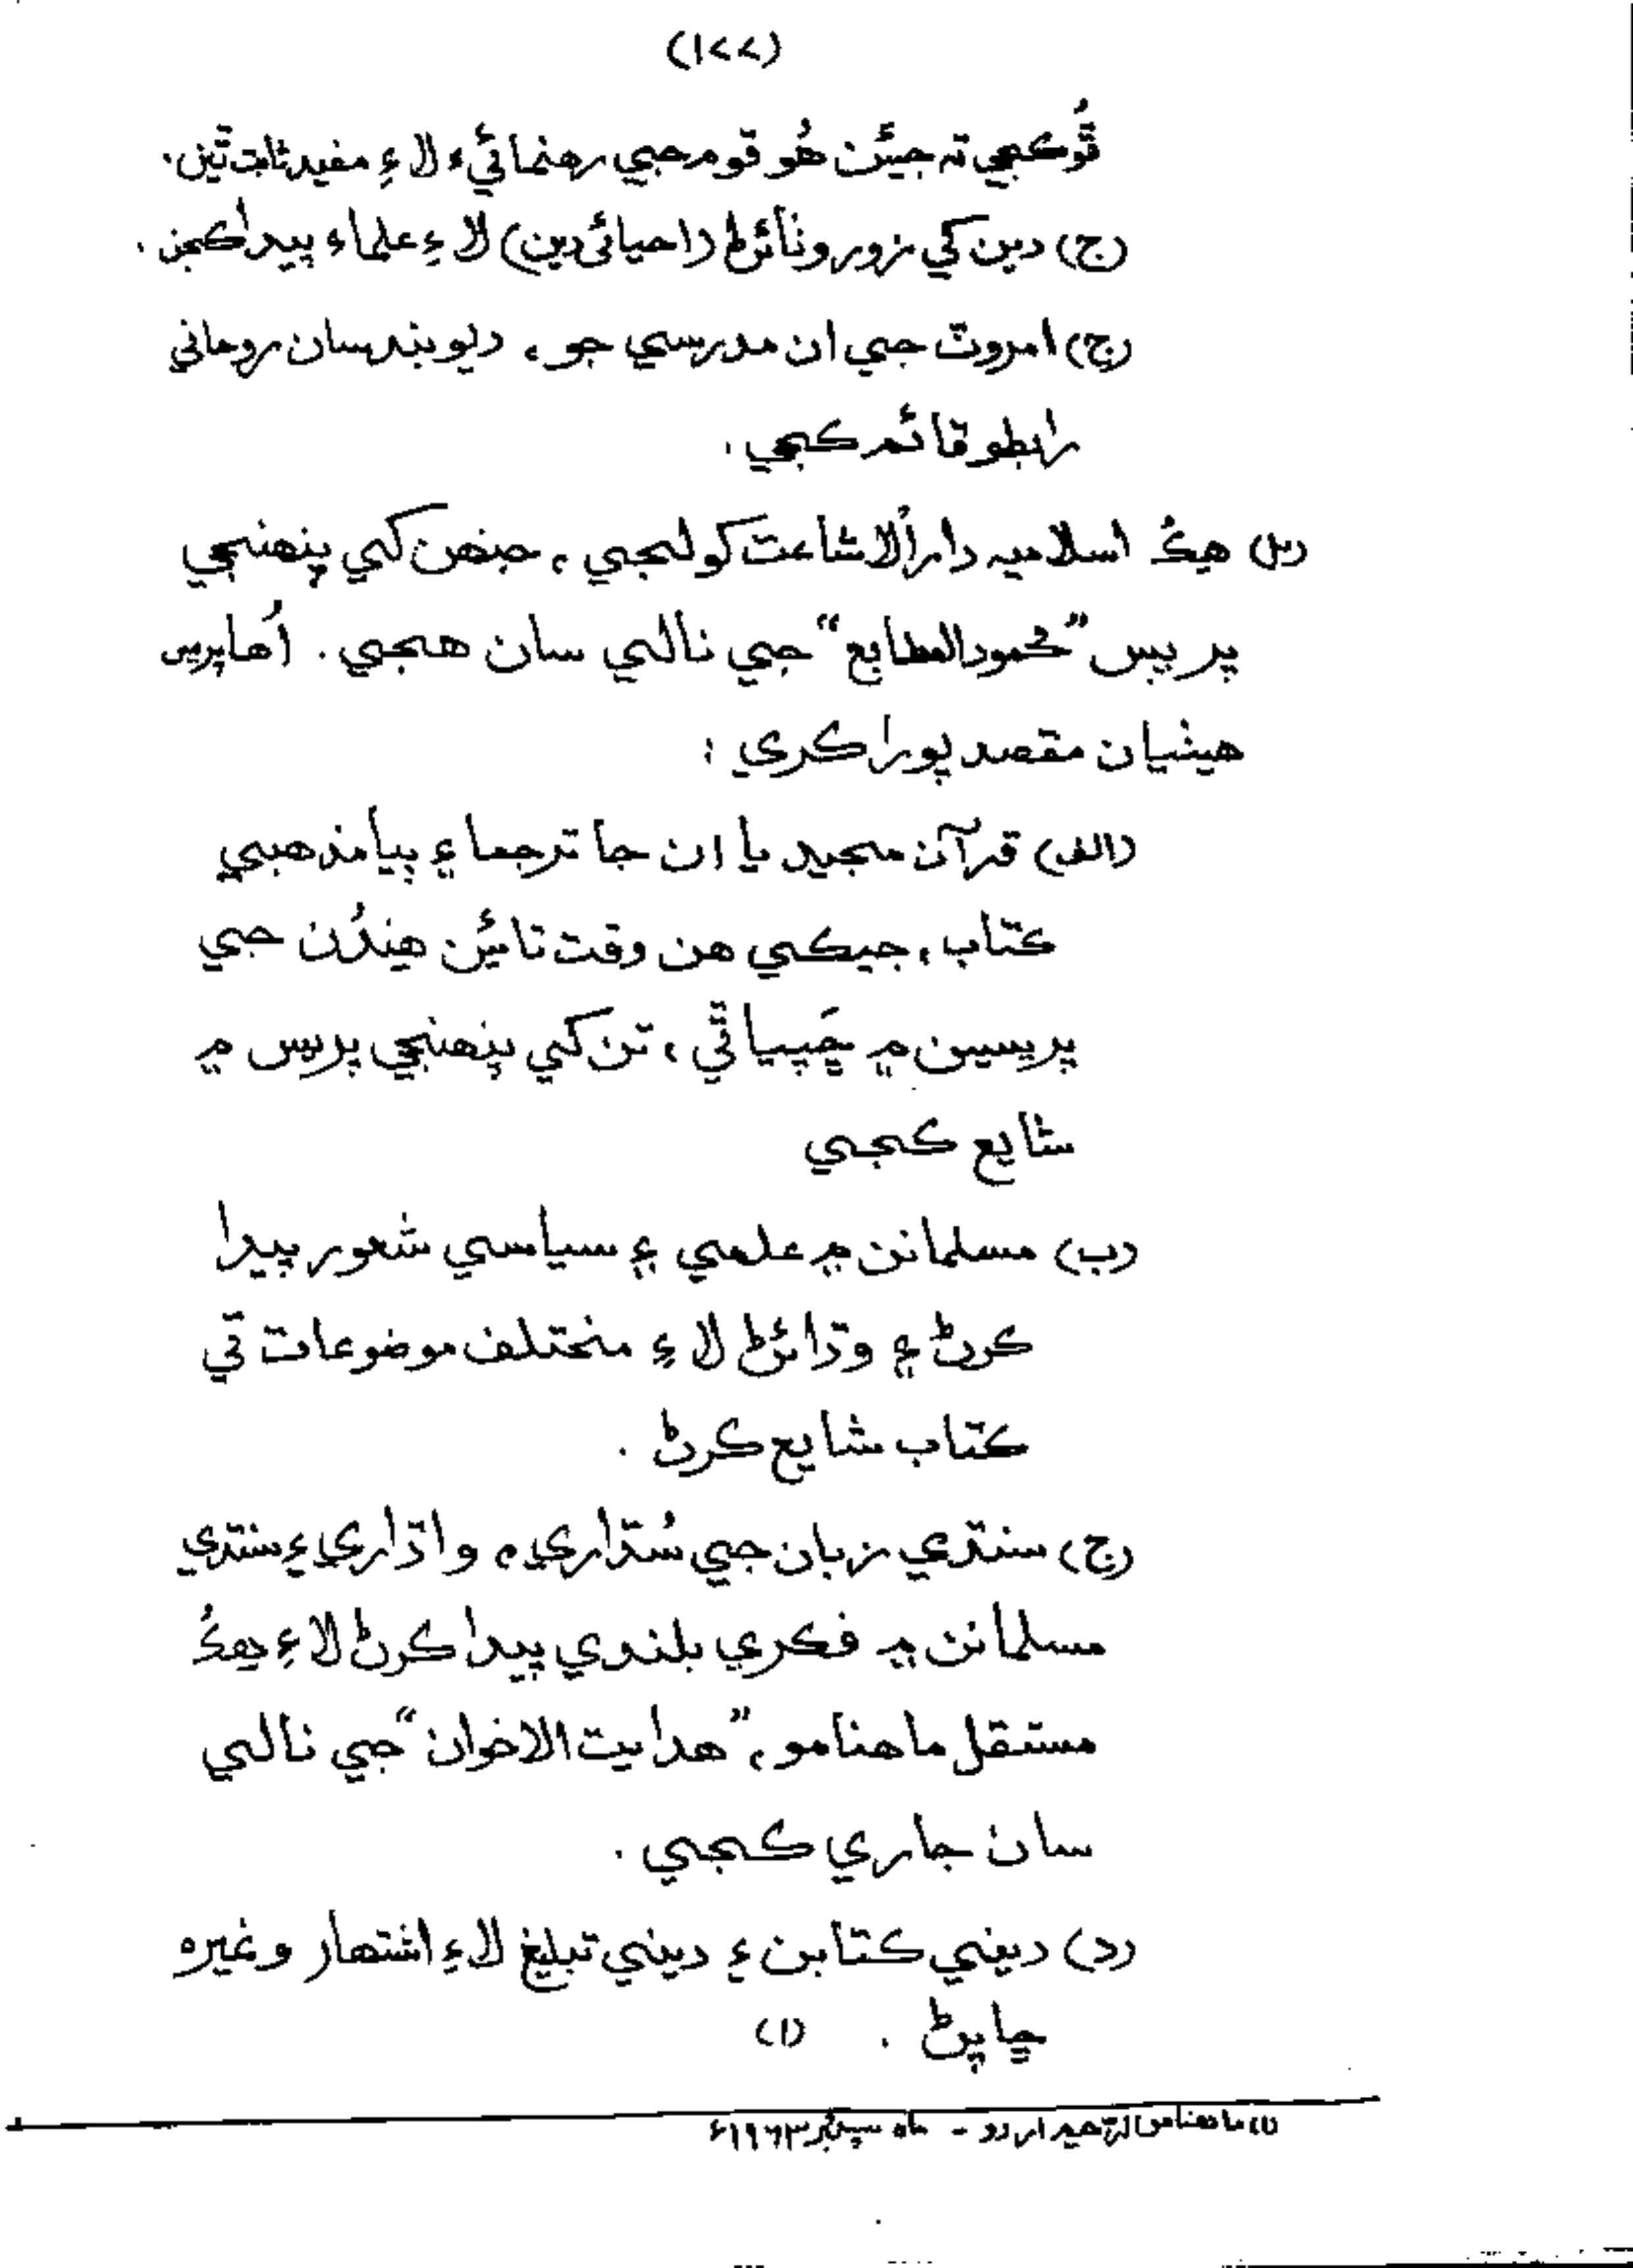 (۱۷۷)
ڦُوڪجي تہ جيئن هُو قوم جي رهنمائيءَ لاءِ مفيد ثابت ٿين.
(ج) دين کي زور وٺائڻ (احيائي دين) لاءِ علماء پيدا ڪجن.
(ج) امروٽ جي ان مدرسي جو، ديوبند سان روحاني
رابطو قائم ڪجي.
(۲) هڪ اسلاميہ دارالاشاعت کولجي، جنهن کي پنهنجي
پريس ”محمود المطابع“ جي نالي سان هجي. اُها پريس
هيٺيان مقصد پورا ڪري:
(الف) قرآن مجيد يا ان جا ترجما ۽ ٻيا مذهبي
ڪتاب، جيڪي هن وقت تائين هندُن جي
پريسين ۾ ڇَپيا ٿي، تن کي پنهنجي پريس ۾
شايع ڪجي
(ب) مسلمانن ۾ علمي ۽ سياسي شعور پيدا
ڪرڻ ۽ وڌائڻ لاءِ مختلف موضوعات تي
ڪتاب شايع ڪرڻ.
(ج) سنڌي زبان جي سُڌاري، واڌاري ۽ سنڌي
مسلمانن ۾ فڪري بلندي پيدا ڪرڻ لاءِ هڪُ
مستقل ماهنامو، ”هدايت الاخوان“ جي نالي
سان جاري ڪجي.
(د) ديني ڪتابن ۽ ديني تبليغ لاءِ اشتهار وغيره
ڇاپڻ. (۱)
(۱) ماهنامو الرحيم اردو - ماه سيپٽمبر ۱۹۶۳ء